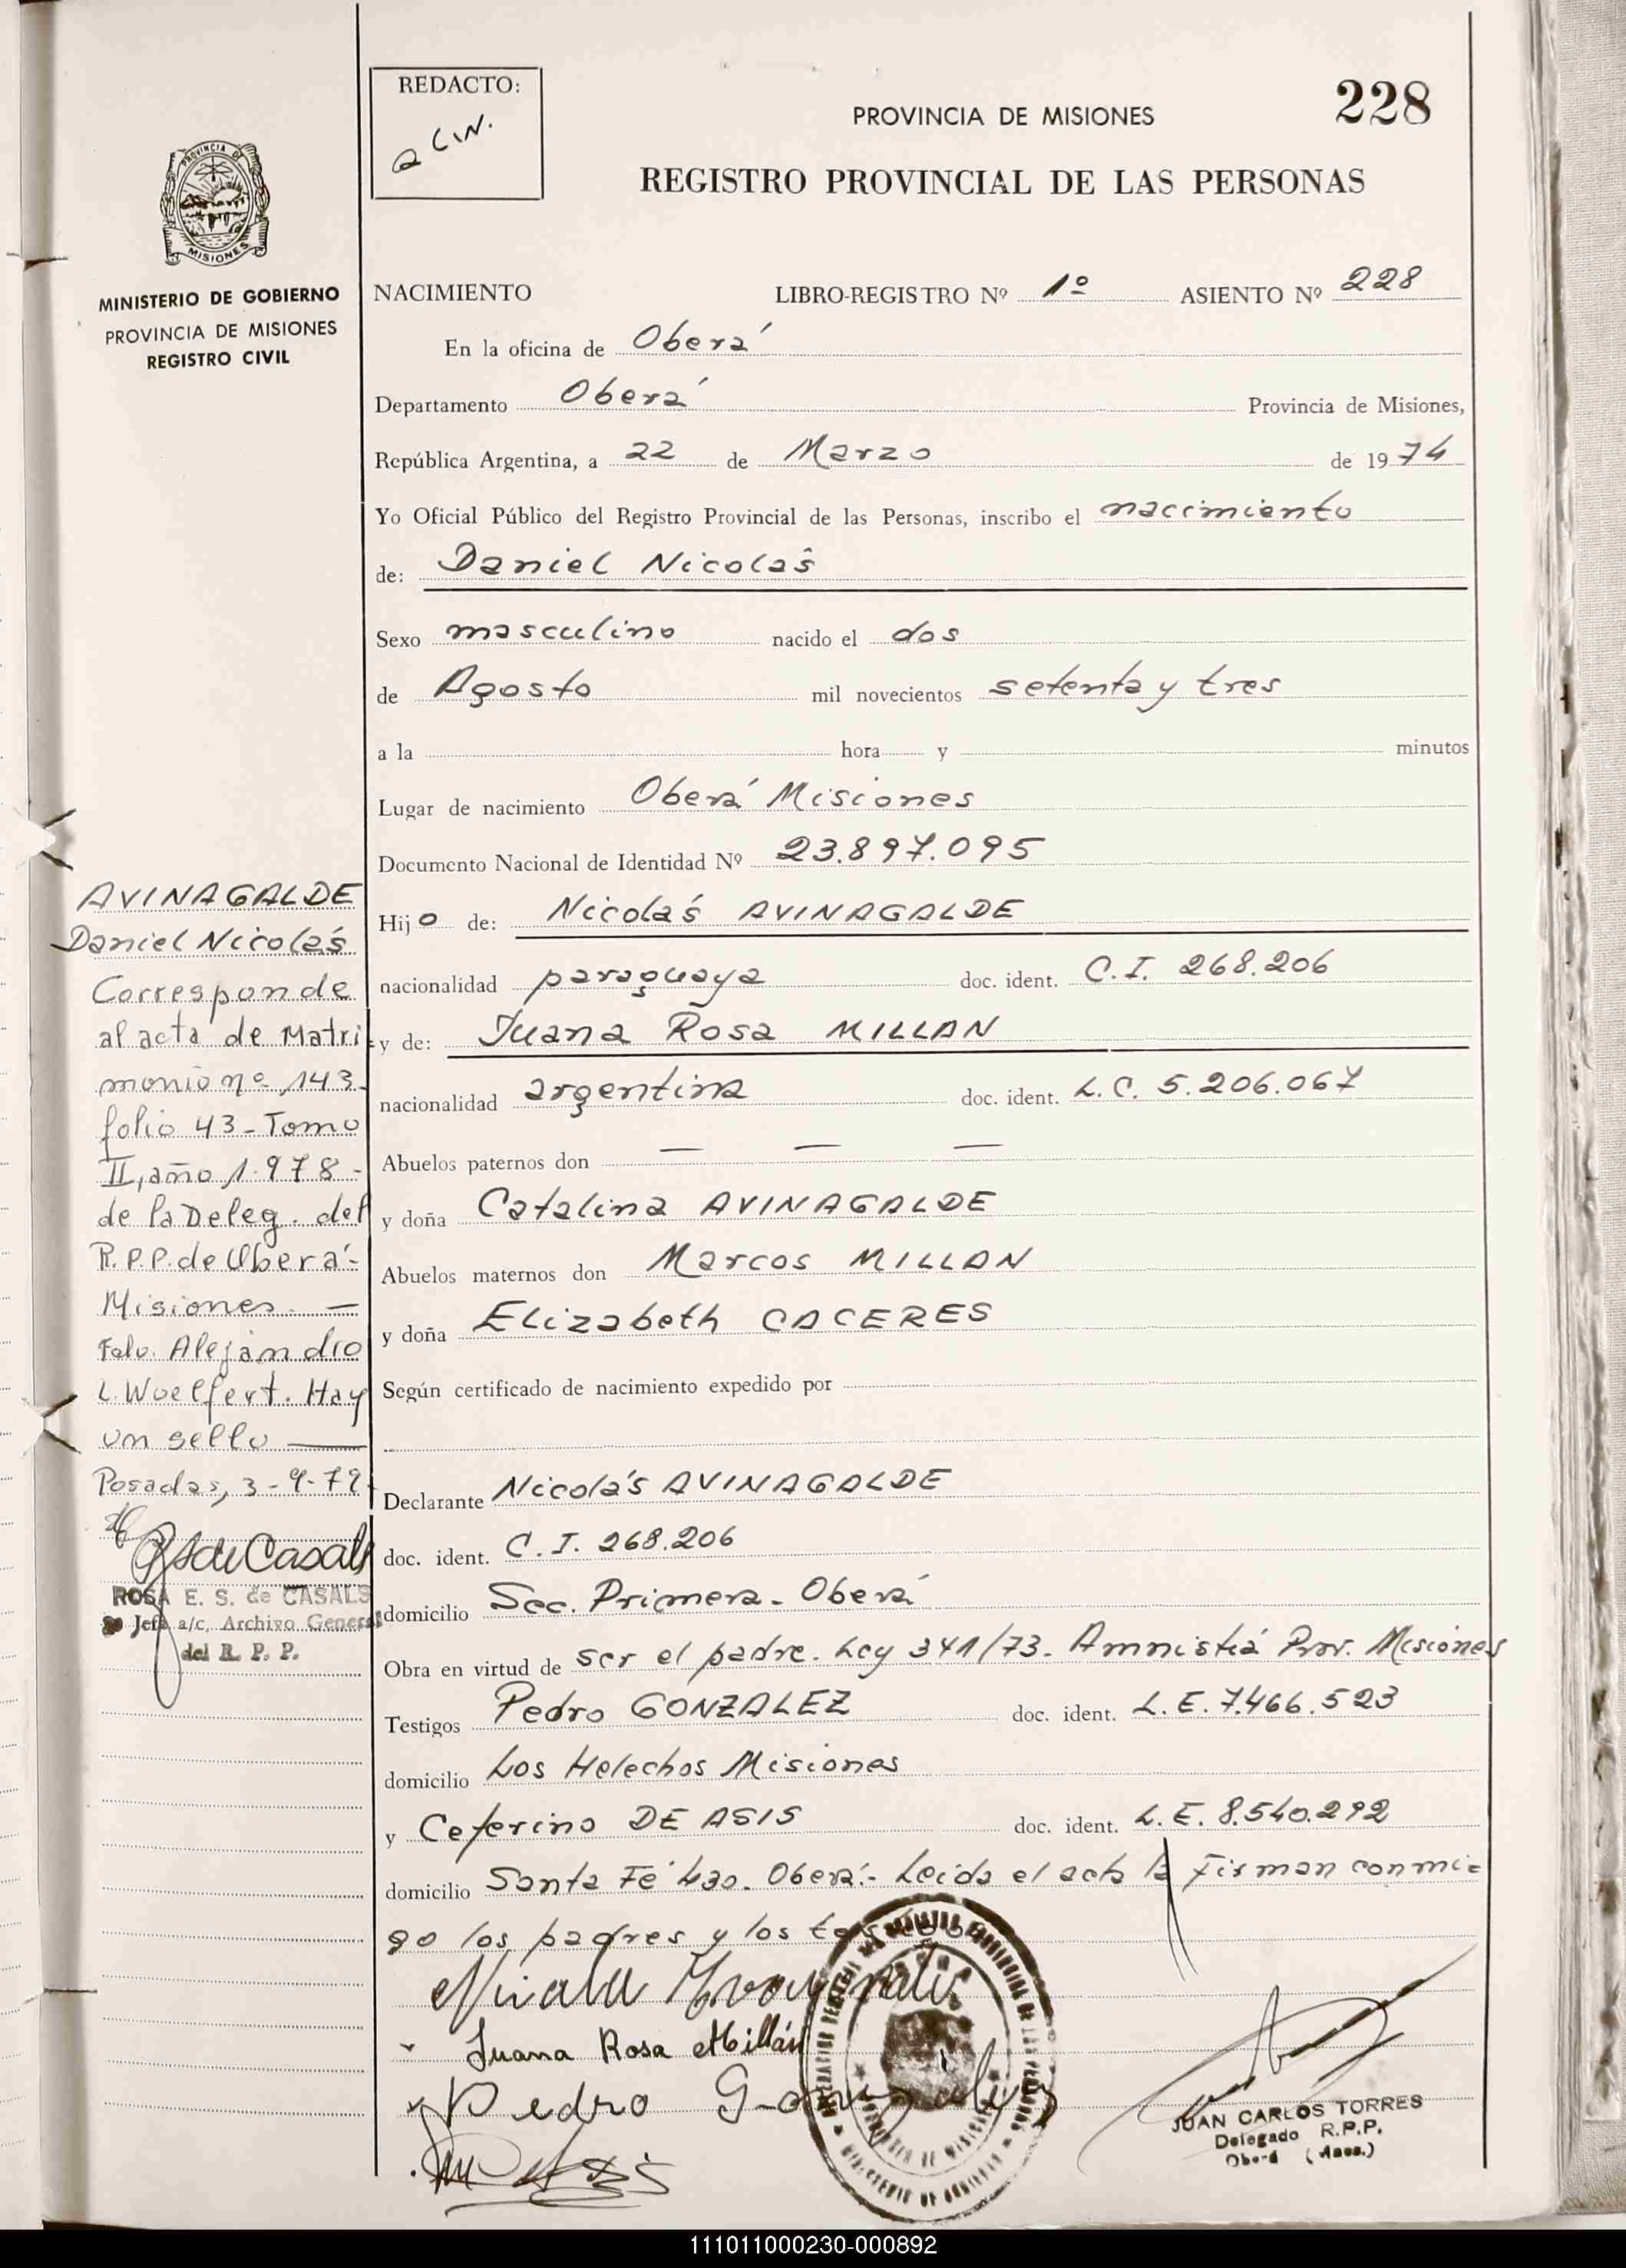 REDACTO:
PROVINCIA DE MISIONES
228
REGISTRO PROVINCIAL DE LAS PERSONAS
PROVINCIA DE
MISIONES
MINISTERIO DE GOBIERNO
PROVINCIA DE MISIONES
REGISTRO CIVIL
NACIMIENTO LIBRO-REGISTRO Nº 1º ASIENTO Nº 228
En la oficina de Oberá
Departamento Oberá Provincia de Misiones,
República Argentina, a 22 de Marzo de 1974
Yo Oficial Público del Registro Provincial de las Personas, inscribo el nacimiento
de: Daniel Nicolás
Sexo masculino nacido el dos
de Agosto mil novecientos setenta y tres
a la hora y minutos
Lugar de nacimiento Oberá Misiones
Documento Nacional de Identidad Nº 23.897.095
Hijo de: Nicolás AVINAGALDE
nacionalidad paraguaya doc. ident. C.I. 268.206
y de: Juana Rosa MILLAN
nacionalidad argentina doc. ident. L.C. 5.206.067
Abuelos paternos don — — —
y doña Catalina AVINAGALDE
Abuelos maternos don Marcos MILLAN
y doña Elizabeth CACERES
Según certificado de nacimiento expedido por
Declarante Nicolás AVINAGALDE
doc. ident. C.I. 268.206
domicilio Sec. Primera. Oberá
Obra en virtud de ser el padre. Ley 341/73. Amnistiá Prov. Misiones
Testigos Pedro GONZALEZ doc. ident. L.E. 7.466.523
domicilio Los Helechos Misiones
y Ceferino DE ASIS doc. ident. L.E. 8.540.292
domicilio Santa Fé 430. Oberá.- Leida el acta la firman conmi=
go los padres y los testigos
Juana Rosa Millán
Pedro Gonzalez
JUAN CARLOS TORRES
Delegado R.P.P.
Oberá (Mnes.)
AVINAGALDE
Daniel Nicolás
Corresponde
al acta de Matri=
monio nº 143-
folio 43-Tomo
II, año 1.978-
de la Deleg. del
R.P.P. de Oberá-
Misiones. —
Fdo. Alejandro
L. Woelfert. Hay
un sello —
Posadas, 3-9-79
ROSA E. S. de CASALS
Jefe a/c. Archivo General
del R. P. P.
111011000230-000892